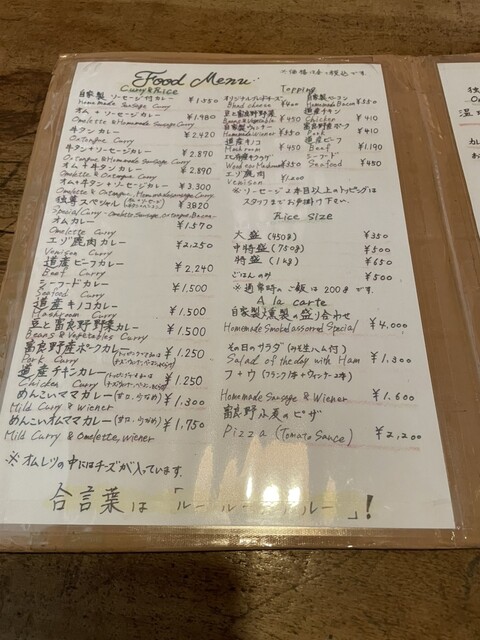 Food Menu
※価格は全て税込です
Curry & Rice
自家製 ソーセージ付カレー ¥1,550
Homemade Sausage Curry
オム + ソーセージカレー ¥1,980
Omelette & Homemade Sausage Curry
牛タン カレー ¥2,420
Oxtangue Curry
牛タン+ソーセージカレー ¥2,870
Oxtangue & Homemade Sausage Curry
オム+牛タンカレー ¥2,890
Omelette & Oxtangue Curry
オム+牛タン+ソーセージカレー ¥3,300
Omelette & Oxtangue, Homemade sausage Curry
独尊スペシャル ¥3,820
Special Curry - Omelette Sausage Oxtangue, Bacon -
オムカレー ¥1,570
Omelette Curry
エゾ鹿肉カレー ¥2,250
Venison Curry
道産ビーフカレー ¥2,240
Beef Curry
シーフードカレー ¥1,500
Seafood Curry
道産キノコカレー ¥1,500
Mashroom Curry
豆と富良野野菜カレー ¥1,500
Beans & Vegetables Curry
富良野産ポークカレー ¥1,250
Pork Curry
道産チキンカレー ¥1,250
Chicken Curry
めんこいママカレー (甘口、少なめ) ¥1,300
Mild Curry & Wiener
めんこいオムママカレー (甘口、少なめ) ¥1,750
Mild Curry & Omelette, wiener
※オムレツの中にはチーズが入っています。
Topping
オリジナルブレンドチーズ
Blend cheese ¥400
豆と富良野野菜
Beans & Vegetable ¥450
自家製ウィンナー
Homemade Wiener ¥350
道産キノコ
Mashroom ¥450
¥350
エゾ鹿肉
Venison ¥1,200
自家製ベーコン
Homemade Bacon ¥550
道産チキン
Chicken ¥410
富良野産ポーク
Pork ¥410
道産ビーフ
Beef ¥1,190
シーフード
Seafood ¥450
※ソーセージ2本目以上のトッピングは
スタッフまでお声掛け下さい。
Rice size
大盛 (450g) ¥350
中特盛 (750g) ¥500
特盛 (1kg) ¥650
ごはんのみ ¥500
※通常時のご飯は200gです。
A la carte
自家製燻製の盛り合わせ
Homemade Smoked assorred Special ¥4,000
その日のサラダ (生ハム付)
Salad of the day with Ham ¥1,300
フ+ウ (フランク1本+ウィンナー2本)
Homemade Sausage & Wiener ¥1,600
富良野小麦のピザ
Pizza (Tomato Sauce) ¥2,200
合言葉は「ルー ルー ルー」!